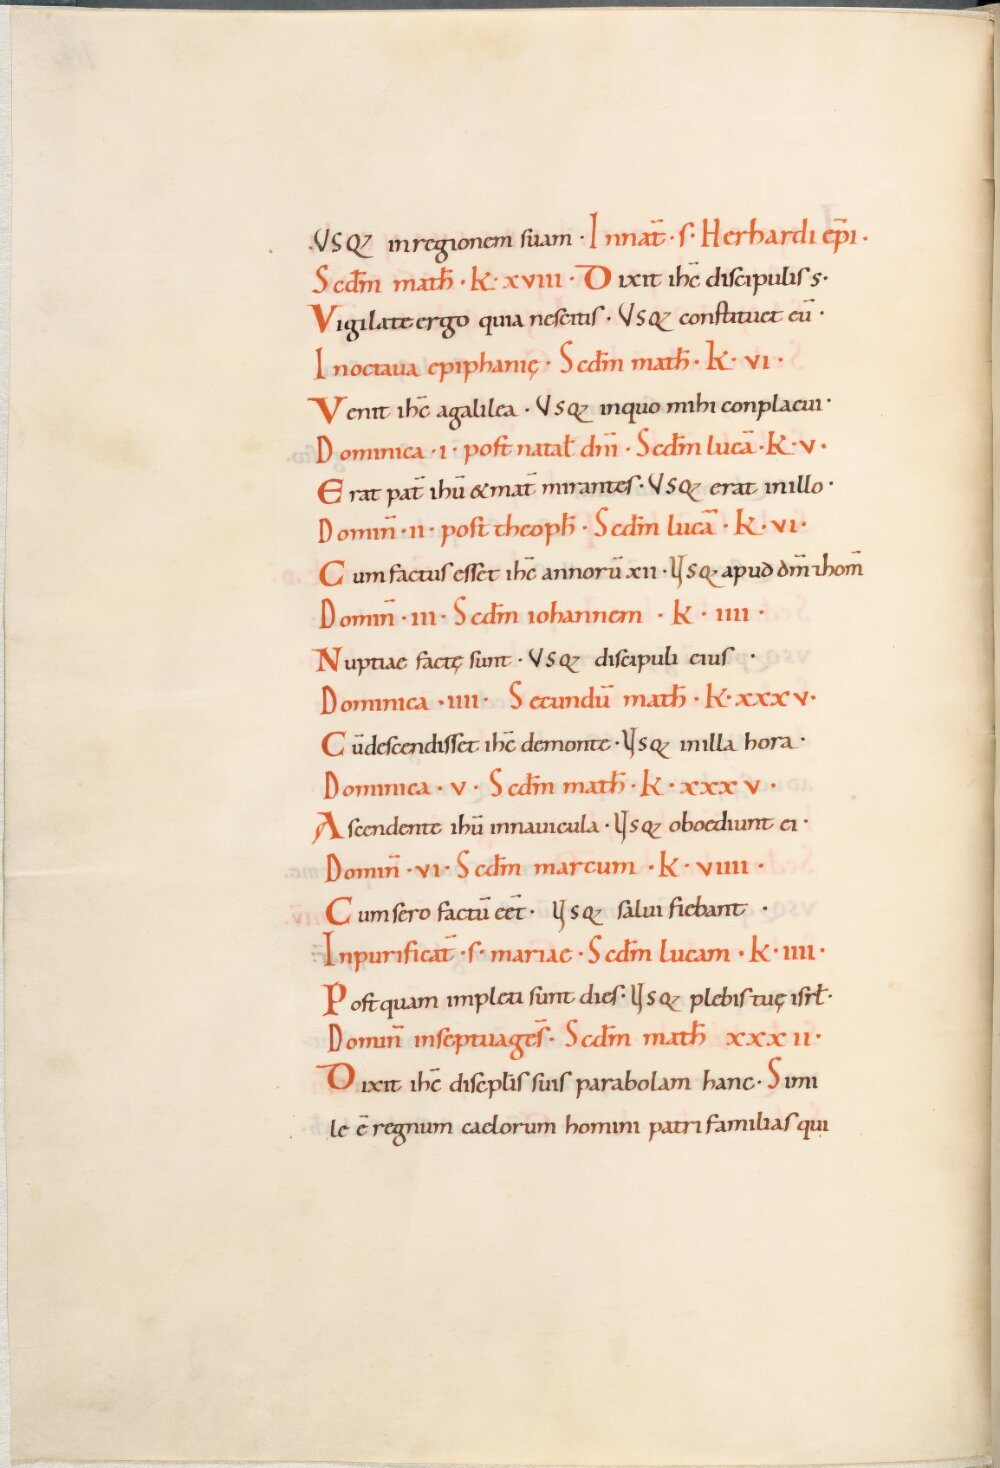 VSQ; inregionem suam · Innat̄ · s · Herhardi ep̄i ·
Scdm̄ math̄ · K · xviii · Dixit ihc̄ discipulis s ·
Vigilate ergo quia nescitis · VSQ; constituet eū ·
Inoctaua epiphanię · Scdm̄ math̄ · K · vi ·
Venit ihc̄ agalilea · VSQ; inquo mihi conplacui ·
Dominica · i · post natał dm̄i · Scdm̄ lucā · K · v ·
Erat pat̄ ihū & mat̄ mirantes · VSQ; erat inillo ·
Domin̄ · ii · post theoph̄ · Scdm̄ lucā · K · vi ·
Cum factus esset ihc̄ annorū xii · VSQ; apud dm̄ & hom̄
Domin̄ · iii · Scdm̄ iohannem · K · iiii ·
Nuptiae factę sunt · VSQ; discipuli eius ·
Dominica · iiii · Secundū math̄ · K · xxxv ·
Cūdescendisset ihc̄ demonte · VSQ; inilla hora ·
Dominica · v · Scdm̄ math̄ · K · xxxv ·
Ascendente ihū innauicula · VSQ; oboediunt ei ·
Domin̄ · vi · Scdm̄ marcum · K · viiii ·
Cumsero factū eēt · VSQ; salui fiebant ·
Inpurificat̄ · s · mariae · Scdm̄ lucam · K · iiii ·
Postquam impleti sunt dies · VSQ; plebis tuę isrł ·
Domin̄ inseptuages̄ · Scdm̄ math̄ xxxii ·
Dixit ihc̄ disceplīs suis parabolam hanc · Simi
le ē regnum caelorum homini patri familias qui